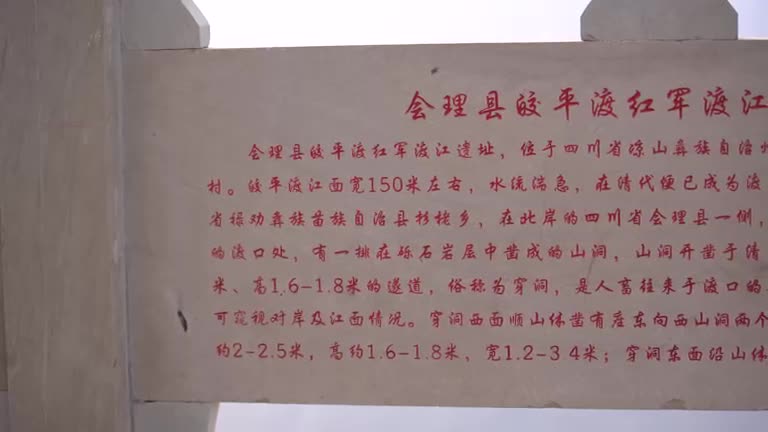 会理县皎平渡红军渡江
会理县皎平渡红军渡江遗址，位于四川省凉山彝族自治州
村。皎平渡江面宽150米左右，水流湍急，在清代便已成为渡
省禄劝彝族苗族自治县杉栳乡，在北岸的四川省会理县一侧，
的渡口处，有一排在砾石岩层中凿成的山洞，山洞开凿于清
米、高1.6-1.8米的遂道，俗称为穿洞，是人畜往来于渡口的
可窥视对岸及江面情况。穿洞西面顺山体凿有座东向西山洞两个
约2-2.5米，高约1.6-1.8米，宽1.2-3 4米；穿洞东西沿山体